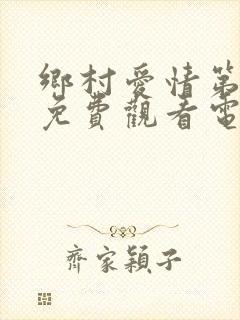 鄉村愛情第
免費觀看電
齊家穎子